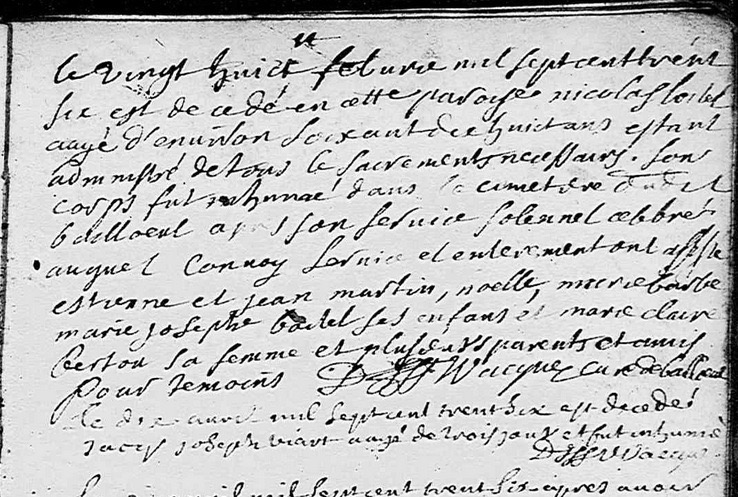 le vingt huict feburie mil sept cent trent
six est decedé en cette paroisse nicolas
aagé d'environ soixant dece huict ans estant
administré de tous le sacrements necessairs. son
corps fut inhumé dans le cimetiere dudit
bailloeul apres son service solennel celebré
auquel convoy service et enterement ont assiste
estienne et jean martin, noelle, marie barbe
marie josephe bostel ses enfans et marie claire
berton sa femme et plusieurs parents et amis
pour temoins Wacquez cure de bailloeul
le dix avril mil sept cent trent six est decedé
jacqs joseph viart aagé de trois jours et fut inhumé
Wacquez
mil sept cent trent six apres avoir